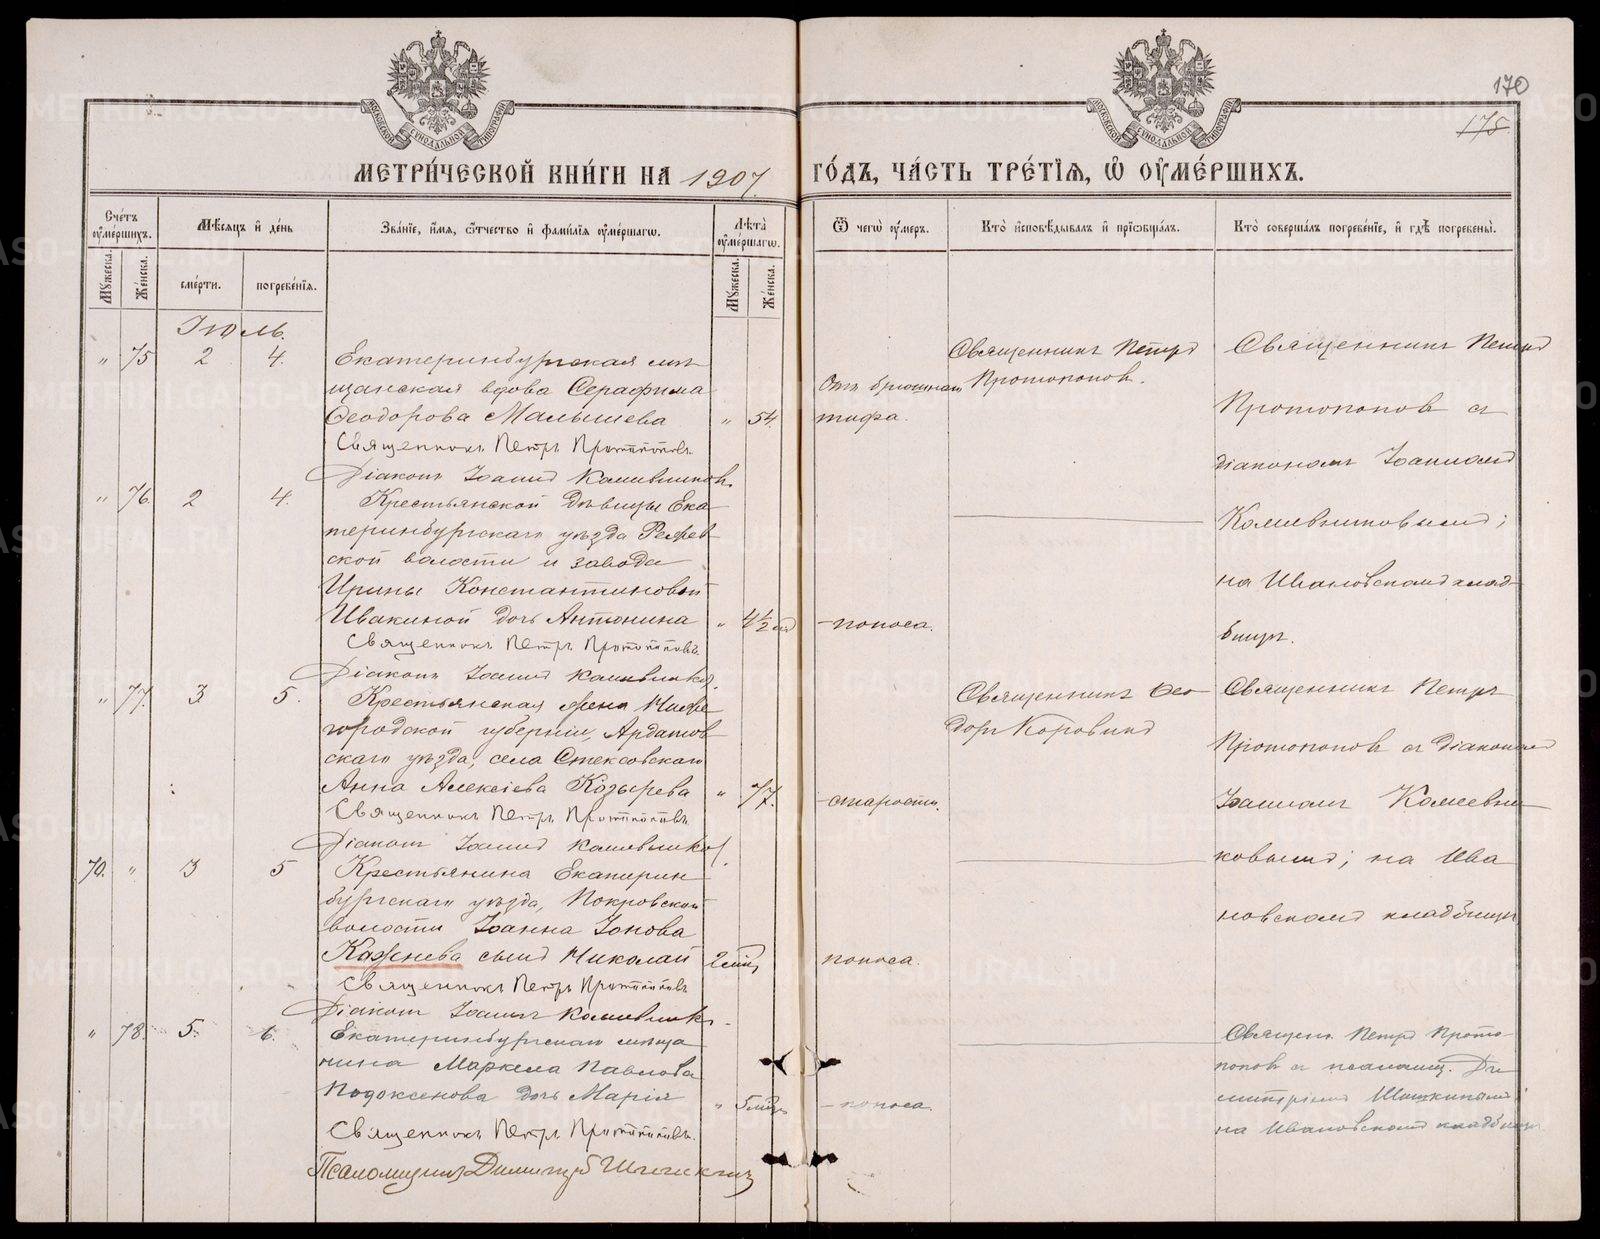 170
175
МОСКОВСКОЙ СѴНОДАЛЬНОЙ ТИПОГРАФІИ
МОСКОВСКОЙ СѴНОДАЛЬНОЙ ТИПОГРАФІИ
МЕТРИ́ЧЕСКОЙ КНИ́ГИ НА 1907 ГО́ДЪ, ЧА́СТЬ ТРЕ́ТІѦ, Ѡ ОУМЕ́РШИХЪ.
Сче́тъ оуме́ршихъ.
Мꙋжеска.
Же́нска.
Мѣ́сяцъ и де́нь
сме́рти.
погребе́нія.
Зва́ніе, и́мя, ѻ҆́тчество и фами́лія оуме́ршагѡ.
Лѣта̀ оуме́ршагѡ.
Мꙋжеска.
Же́нска.
Ѿ чегѡ̀ оу́меръ.
Кто̀ исповѣ́дывалъ и прїѡбща́лъ.
Кто̀ соверша́лъ погребе́ніе, и гдѣ̀ погребены̀.
Іюль.
" 75 2 4.
Екатеринбургская мѣ-
щанская вдова Серафима
Ѳеодорова Малышева " 54.
Священникъ Петръ Протопоповъ.
Діаконъ Іоаннъ Кашевниковъ.
Отъ брюшнаго
тифа.
Священникъ Петръ
Протопоповъ.
Священникъ Петръ
Протопоповъ съ
діакономъ Іоанномъ
Кашевниковымъ;
на Ивановскомъ клад-
бищѣ.
" 76. 2 4.
Крестьянской дѣвицы Ека-
теринбургскаго уѣзда Режев-
ской волости и завода
Ирины Константиновой
Ивакиной дочь Антонина " 4½
Священникъ Петръ Протопоповъ.
Діаконъ Іоаннъ Кашевниковъ.
– поноса.
" 77. 3 5.
Крестьянская жена Ниже-
городской губерніи, Ардатов-
скаго уѣзда, села Стексовскаго
Анна Алексіева Козырева " 77.
Священникъ Петръ Протопоповъ
Діаконъ Іоаннъ Кашевниковъ.
– старости.
Священникъ Ѳео-
доръ Коровинъ
Священникъ Петръ
Протопоповъ съ діаконом
Іоанномъ Кашевни-
ковымъ; на Ива
новскомъ кладбищѣ
70. " 3 5
Крестьянина Екатерин-
бургскаго уѣзда, Покровской
волости Іоанна Іонова
Кажнева сынъ Николай 2 мѣс
Священникъ Петръ Протопоповъ
Діаконъ Іоаннъ Кашевниковъ.
поноса.
" 78. 5. 6.
Екатеринбургскаго мѣща
нина Маркела Павлова
Подоксенова дочь Марія " 5 мѣс
Священникъ Петръ Протопоповъ.
Псаломщикъ Димитрій Шишкинъ
– поноса.
Священ. Петръ Прото-
поповъ съ псаломщ. Ди
митріемъ Шишкинымъ;
на Ивановскомъ кладбищѣ
METRIKI.GASO-URAL.RU